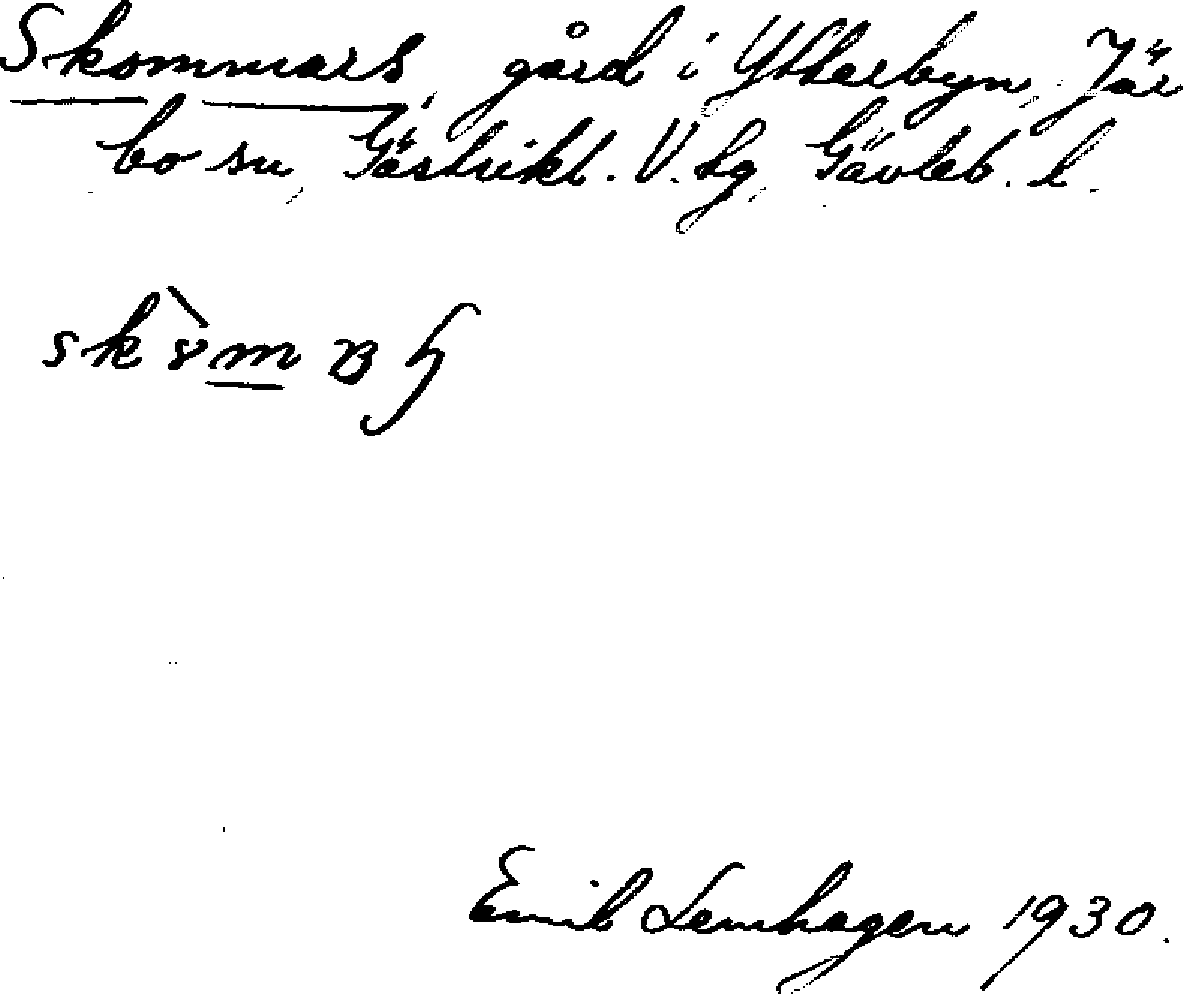 Skommars, gård i Ytterbyn, Jär
bo sn, Gästrikl. V. tg, Gävleb. l.
Emil Lemhagen 1930.